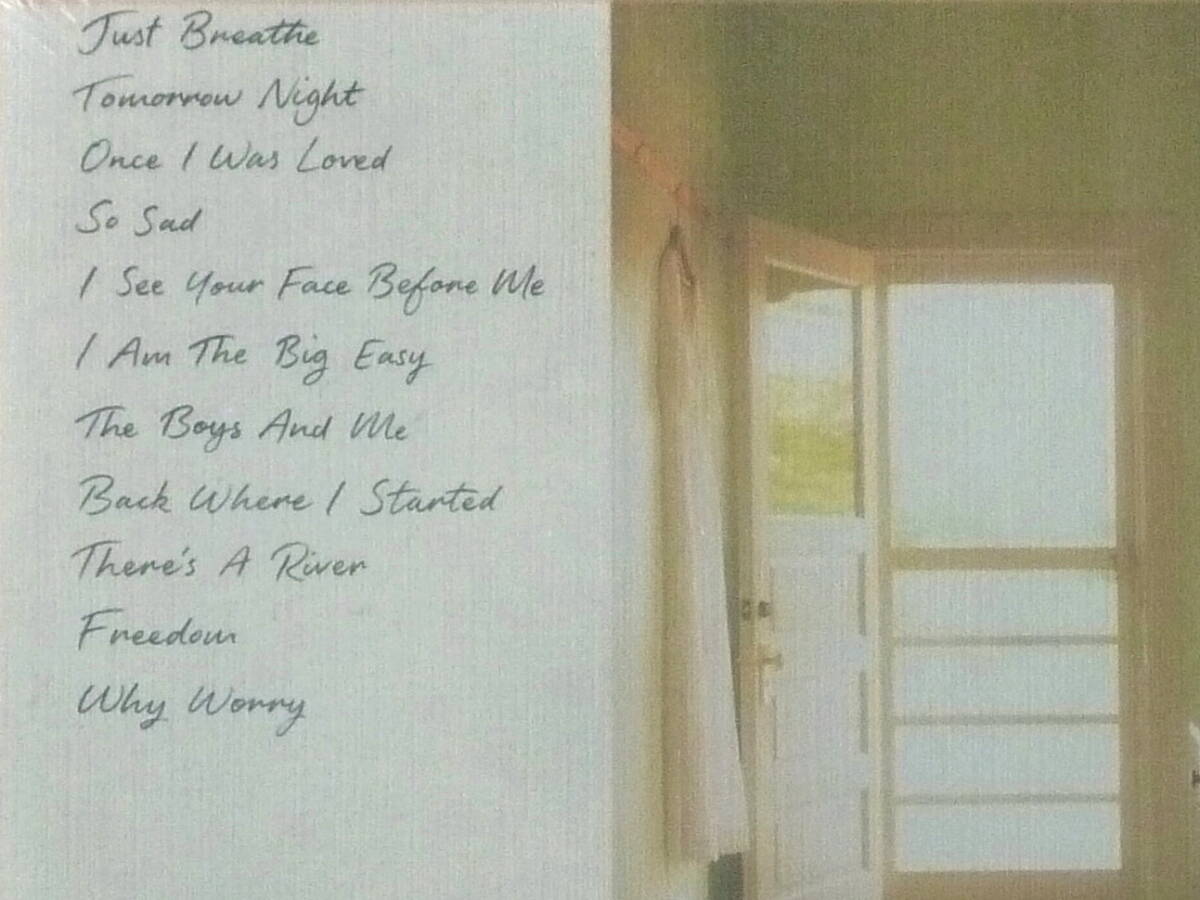 Just Breathe
Tomorrow Night
Once I Was Loved
So Sad
I See Your Face Before Me
I Am The Big Easy
The Boys And Me
Back Where I Started
There's A River
Freedom
Why Worry